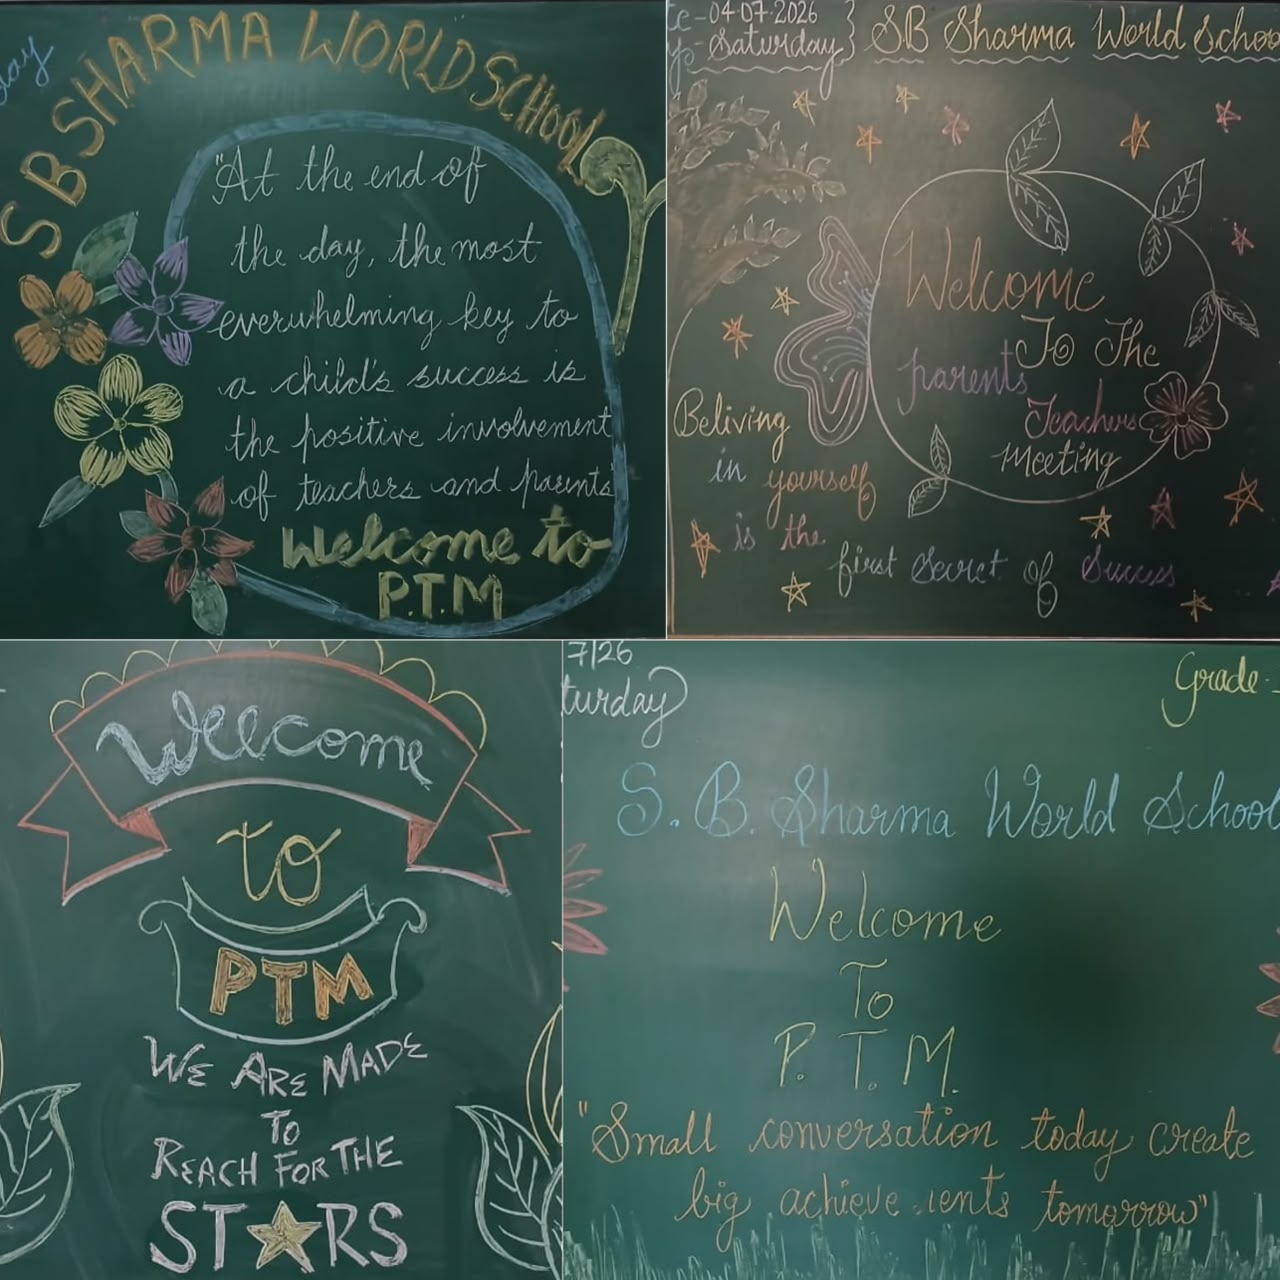 S B SHARMA WORLD SCHOOL
"At the end of
the day, the most
everwhelming key to
a child's success is
the positive involvement
of teachers and parents
Welcome to
P.T.M
04-07-2026
Saturday
SB Sharma World School
Welcome
To The
parents
Teachers
Meeting
Beliving
in yourself
is the
first Secret of Success
Welcome
to
PTM
WE ARE MADE
TO
REACH FOR THE
STARS
7/26
turday
Grade-
S. B. Sharma World School
Welcome
To
P. T. M.
"Small conversation today create
big achieve ents tomorrow"